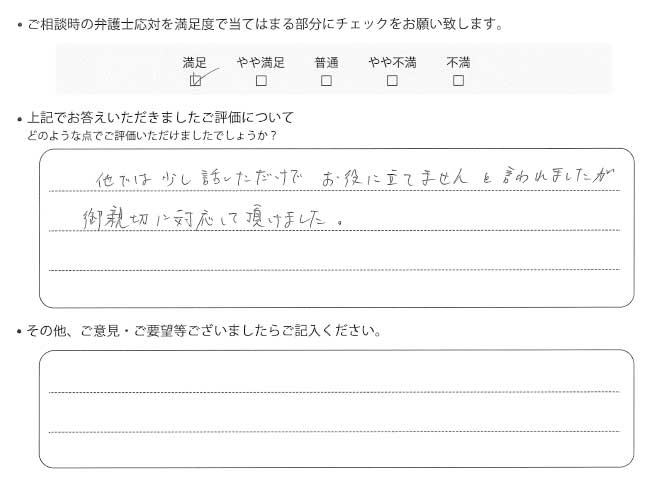 • ご相談時の弁護士応対を満足度で当てはまる部分にチェックをお願い致します。
満足 やや満足 普通 やや不満 不満
• 上記でお答えいただきましたご評価について
どのような点でご評価いただけましたでしょうか?
他では少し話しただけでお役に立てませんと言われましたが
御親切に対応して頂けました。
• その他、ご意見・ご要望等ございましたらご記入ください。